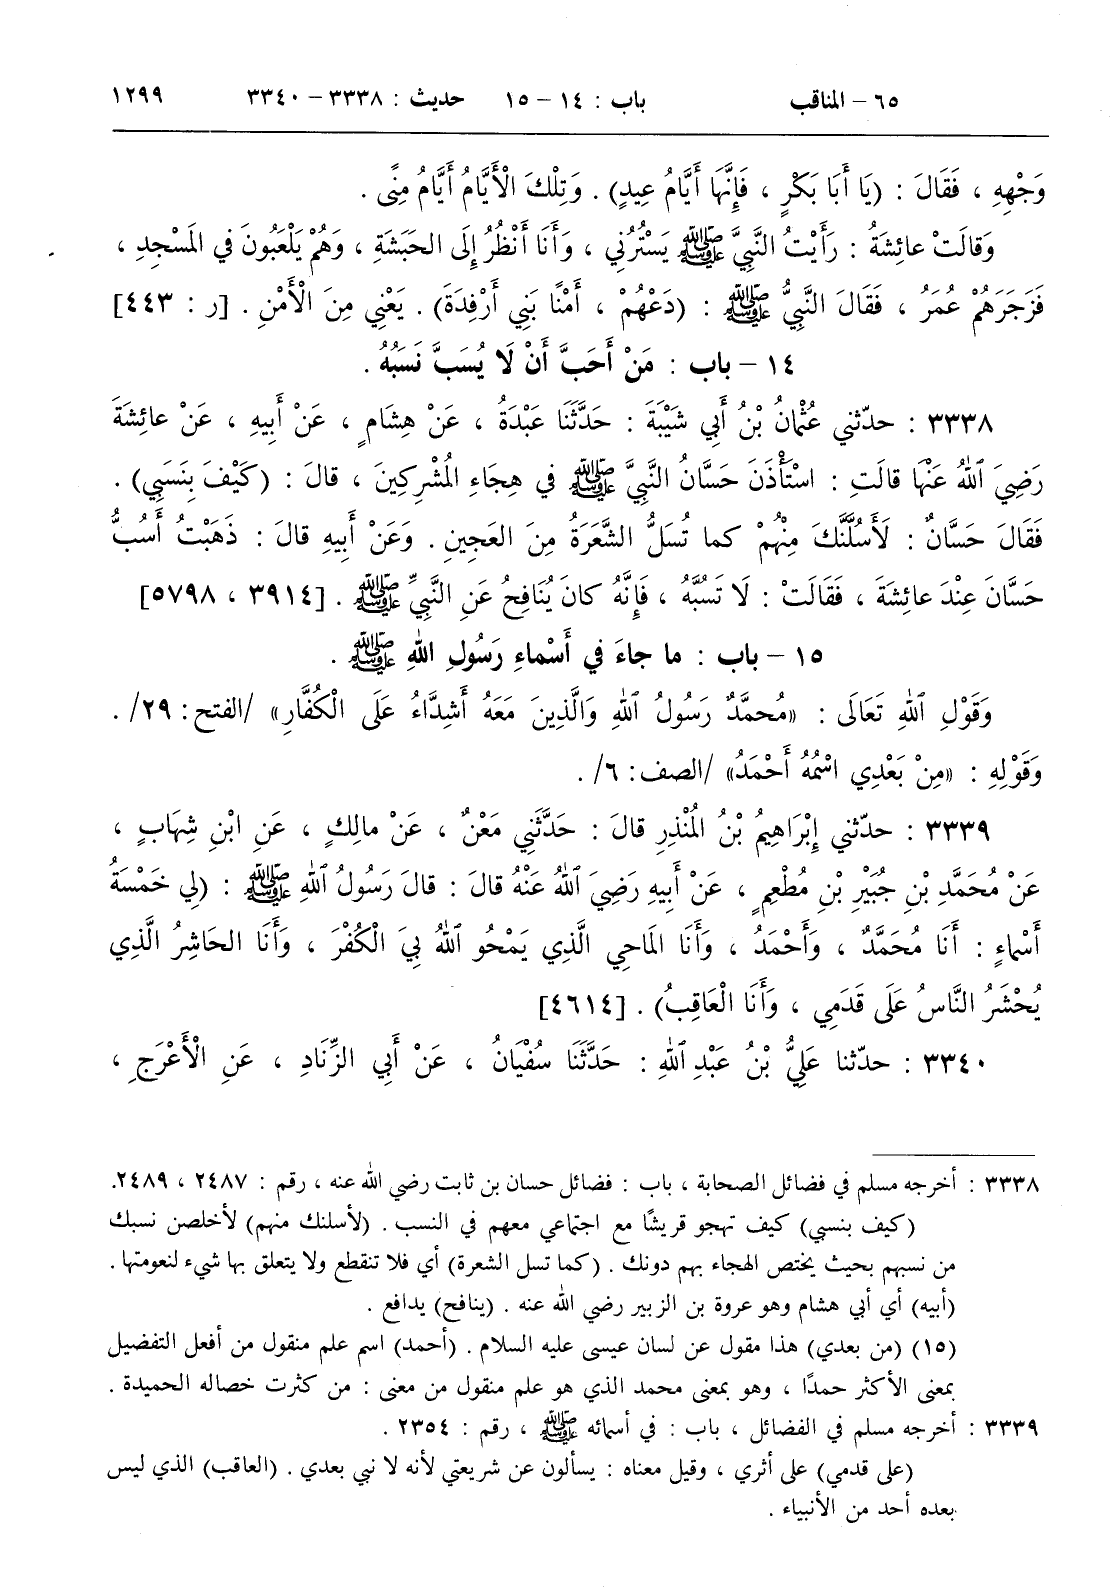 ٦٥ – المناقب باب : ١٤ – ١٥ حديث : ٣٣٣٨ – ٣٣٤٠ ١٢٩٩
وَجْهِهِ ، فَقَالَ : (يَا أَبَا بَكْرٍ ، فَإِنَّهَا أَيَّامُ عِيدٍ) . وَتِلْكَ الْأَيَّامُ أَيَّامُ مِنًى .
وَقالَتْ عائِشَةُ : رَأَيْتُ النَّبِيَّ ﷺ يَسْتُرُنِي ، وَأَنَا أَنْظُرُ إِلَى الحَبَشَةِ ، وَهُمْ يَلْعَبُونَ فِي المَسْجِدِ ،
فَزَجَرَهُمْ عُمَرُ ، فَقَالَ النَّبِيُّ ﷺ : (دَعْهُمْ ، أَمْنًا بَنِي أَرْفِدَةَ) . يَعْنِي مِنَ الْأَمْنِ . [ر : ٤٤٣]
١٤ – باب : مَنْ أَحَبَّ أَنْ لَا يُسَبَّ نَسَبُهُ .
٣٣٣٨ : حدّثني عُثْمانُ بْنُ أَبِي شَيْبَةَ : حَدَّثَنَا عَبْدَةُ ، عَنْ هِشَامٍ ، عَنْ أَبِيهِ ، عَنْ عائِشَةَ
رَضِيَ ٱللهُ عَنْهَا قالَتِ : اسْتَأْذَنَ حَسَّانُ النَّبِيَّ ﷺ فِي هِجَاءِ المُشْرِكِينَ ، قالَ : (كَيْفَ بِنَسَبِي) .
فَقَالَ حَسَّانٌ : لَأَسُلَّنَّكَ مِنْهُمْ كما تُسَلُّ الشَّعَرَةُ مِنَ العَجِينِ . وَعَنْ أَبِيهِ قالَ : ذَهَبْتُ أَسُبُّ
حَسَّانَ عِنْدَ عائِشَةَ ، فَقَالَتْ : لَا تَسُبَّهُ ، فَإِنَّهُ كانَ يُنَافِحُ عَنِ النَّبِيِّ ﷺ . [٣٩١٤ ، ٥٧٩٨]
١٥ – باب : ما جاءَ فِي أَسْماءِ رَسُولِ اللهِ ﷺ .
وَقَوْلِ ٱللهِ تَعَالَى : «مُحمَّدٌ رَسُولُ ٱللهِ وَالَّذِينَ مَعَهُ أَشِدَّاءُ عَلَى الْكُفَّارِ» /الفتح: ٢٩/ .
وَقَوْلِهِ : «مِنْ بَعْدِي اسْمُهُ أَحْمَدُ» /الصف: ٦/ .
٣٣٣٩ : حدّثني إِبْرَاهِيمُ بْنُ المُنْذِرِ قالَ : حَدَّثَنِي مَعْنٌ ، عَنْ مالِكٍ ، عَنِ ابْنِ شِهَابٍ ،
عَنْ مُحَمَّدِ بْنِ جُبَيْرِ بْنِ مُطْعِمٍ ، عَنْ أَبِيهِ رَضِيَ ٱللهُ عَنْهُ قالَ : قالَ رَسُولُ اللهِ ﷺ : (لِي خَمْسَةُ
أَسْماءٍ : أَنَا مُحَمَّدٌ ، وَأَحْمَدُ ، وَأَنَا المَاحِي الَّذِي يَمْحُو ٱللهُ بِيَ الْكُفْرَ ، وَأَنَا الحَاشِرُ الَّذِي
يُحْشَرُ النَّاسُ عَلَى قَدَمِي ، وَأَنَا الْعَاقِبُ) . [٤٦١٤]
٣٣٤٠ : حدّثنا عَلِيُّ بْنُ عَبْدِ اللهِ : حَدَّثَنَا سُفْيَانُ ، عَنْ أَبِي الزِّنَادِ ، عَنِ الْأَعْرَجِ ،
٣٣٣٨ : أخرجه مسلم في فضائل الصحابة ، باب : فضائل حسان بن ثابت رضي الله عنه ، رقم : ٢٤٨٧ ، ٢٤٨٩.
(كيف بنسبي) كيف تهجو قريشًا مع اجتماعي معهم في النسب . (لأسلنك منهم) لأخلصن نسبك
من نسبهم بحيث يختص الهجاء بهم دونك . (كما تسل الشعرة) أي فلا تنقطع ولا يتعلق بها شيء لنعومتها .
(أبيه) أي أبي هشام وهو عروة بن الزبير رضي الله عنه . (ينافح) يدافع .
(١٥) (من بعدي) هذا مقول عن لسان عيسى عليه السلام . (أحمد) اسم علم منقول من أفعل التفضيل
بمعنى الأكثر حمدًا ، وهو بمعنى محمد الذي هو علم منقول من معنى : من كثرت خصاله الحميدة .
٣٣٣٩ : أخرجه مسلم في الفضائل ، باب : في أسمائه ﷺ ، رقم : ٢٣٥٤ .
(على قدمي) على أثري ، وقيل معناه : يسألون عن شريعتي لأنه لا نبي بعدي . (العاقب) الذي ليس
بعده أحد من الأنبياء .